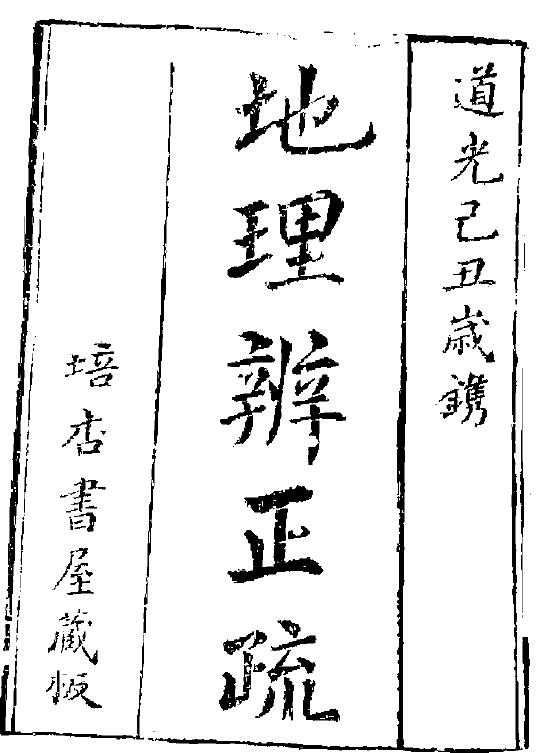 道光己丑歲鐫
地理辨正疏
培杏書屋藏板